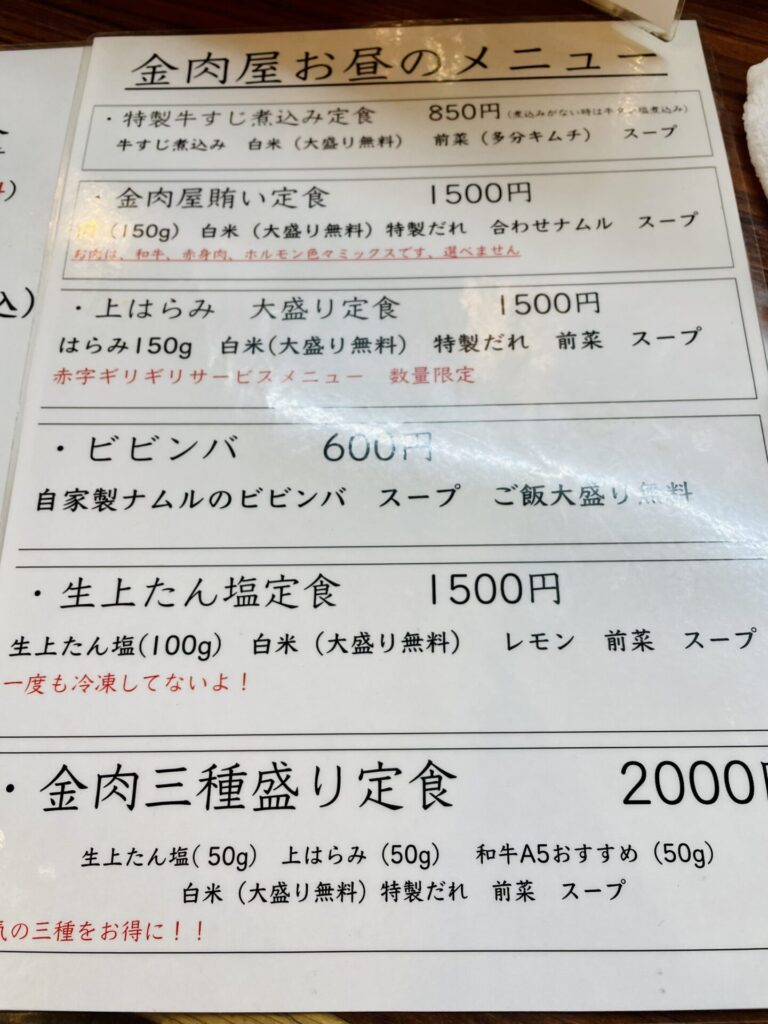 金肉屋お昼のメニュー
・特製牛すじ煮込み定食 850円(煮込みがない時は牛タン塩煮込み)
牛すじ煮込み 白米(大盛り無料) 前菜(多分キムチ) スープ
・金肉屋賄い定食 1500円
肉(150g) 白米(大盛り無料)特製だれ 合わせナムル スープ
お肉は、和牛、赤身肉、ホルモン色々ミックスです、選べません
込)
・上はらみ 大盛り定食 1500円
はらみ150g 白米(大盛り無料) 特製だれ 前菜 スープ
赤字ギリギリサービスメニュー 数量限定
・ビビンバ 600円
自家製ナムルのビビンバ スープ ご飯大盛り無料
・生上たん塩定食 1500円
生上たん塩(100g) 白米(大盛り無料) レモン 前菜 スープ
一度も冷凍してないよ!
・金肉三種盛り定食 2000円
生上たん塩(50g) 上はらみ(50g) 和牛A5おすすめ(50g)
白米(大盛り無料)特製だれ 前菜 スープ
気の三種をお得に!!